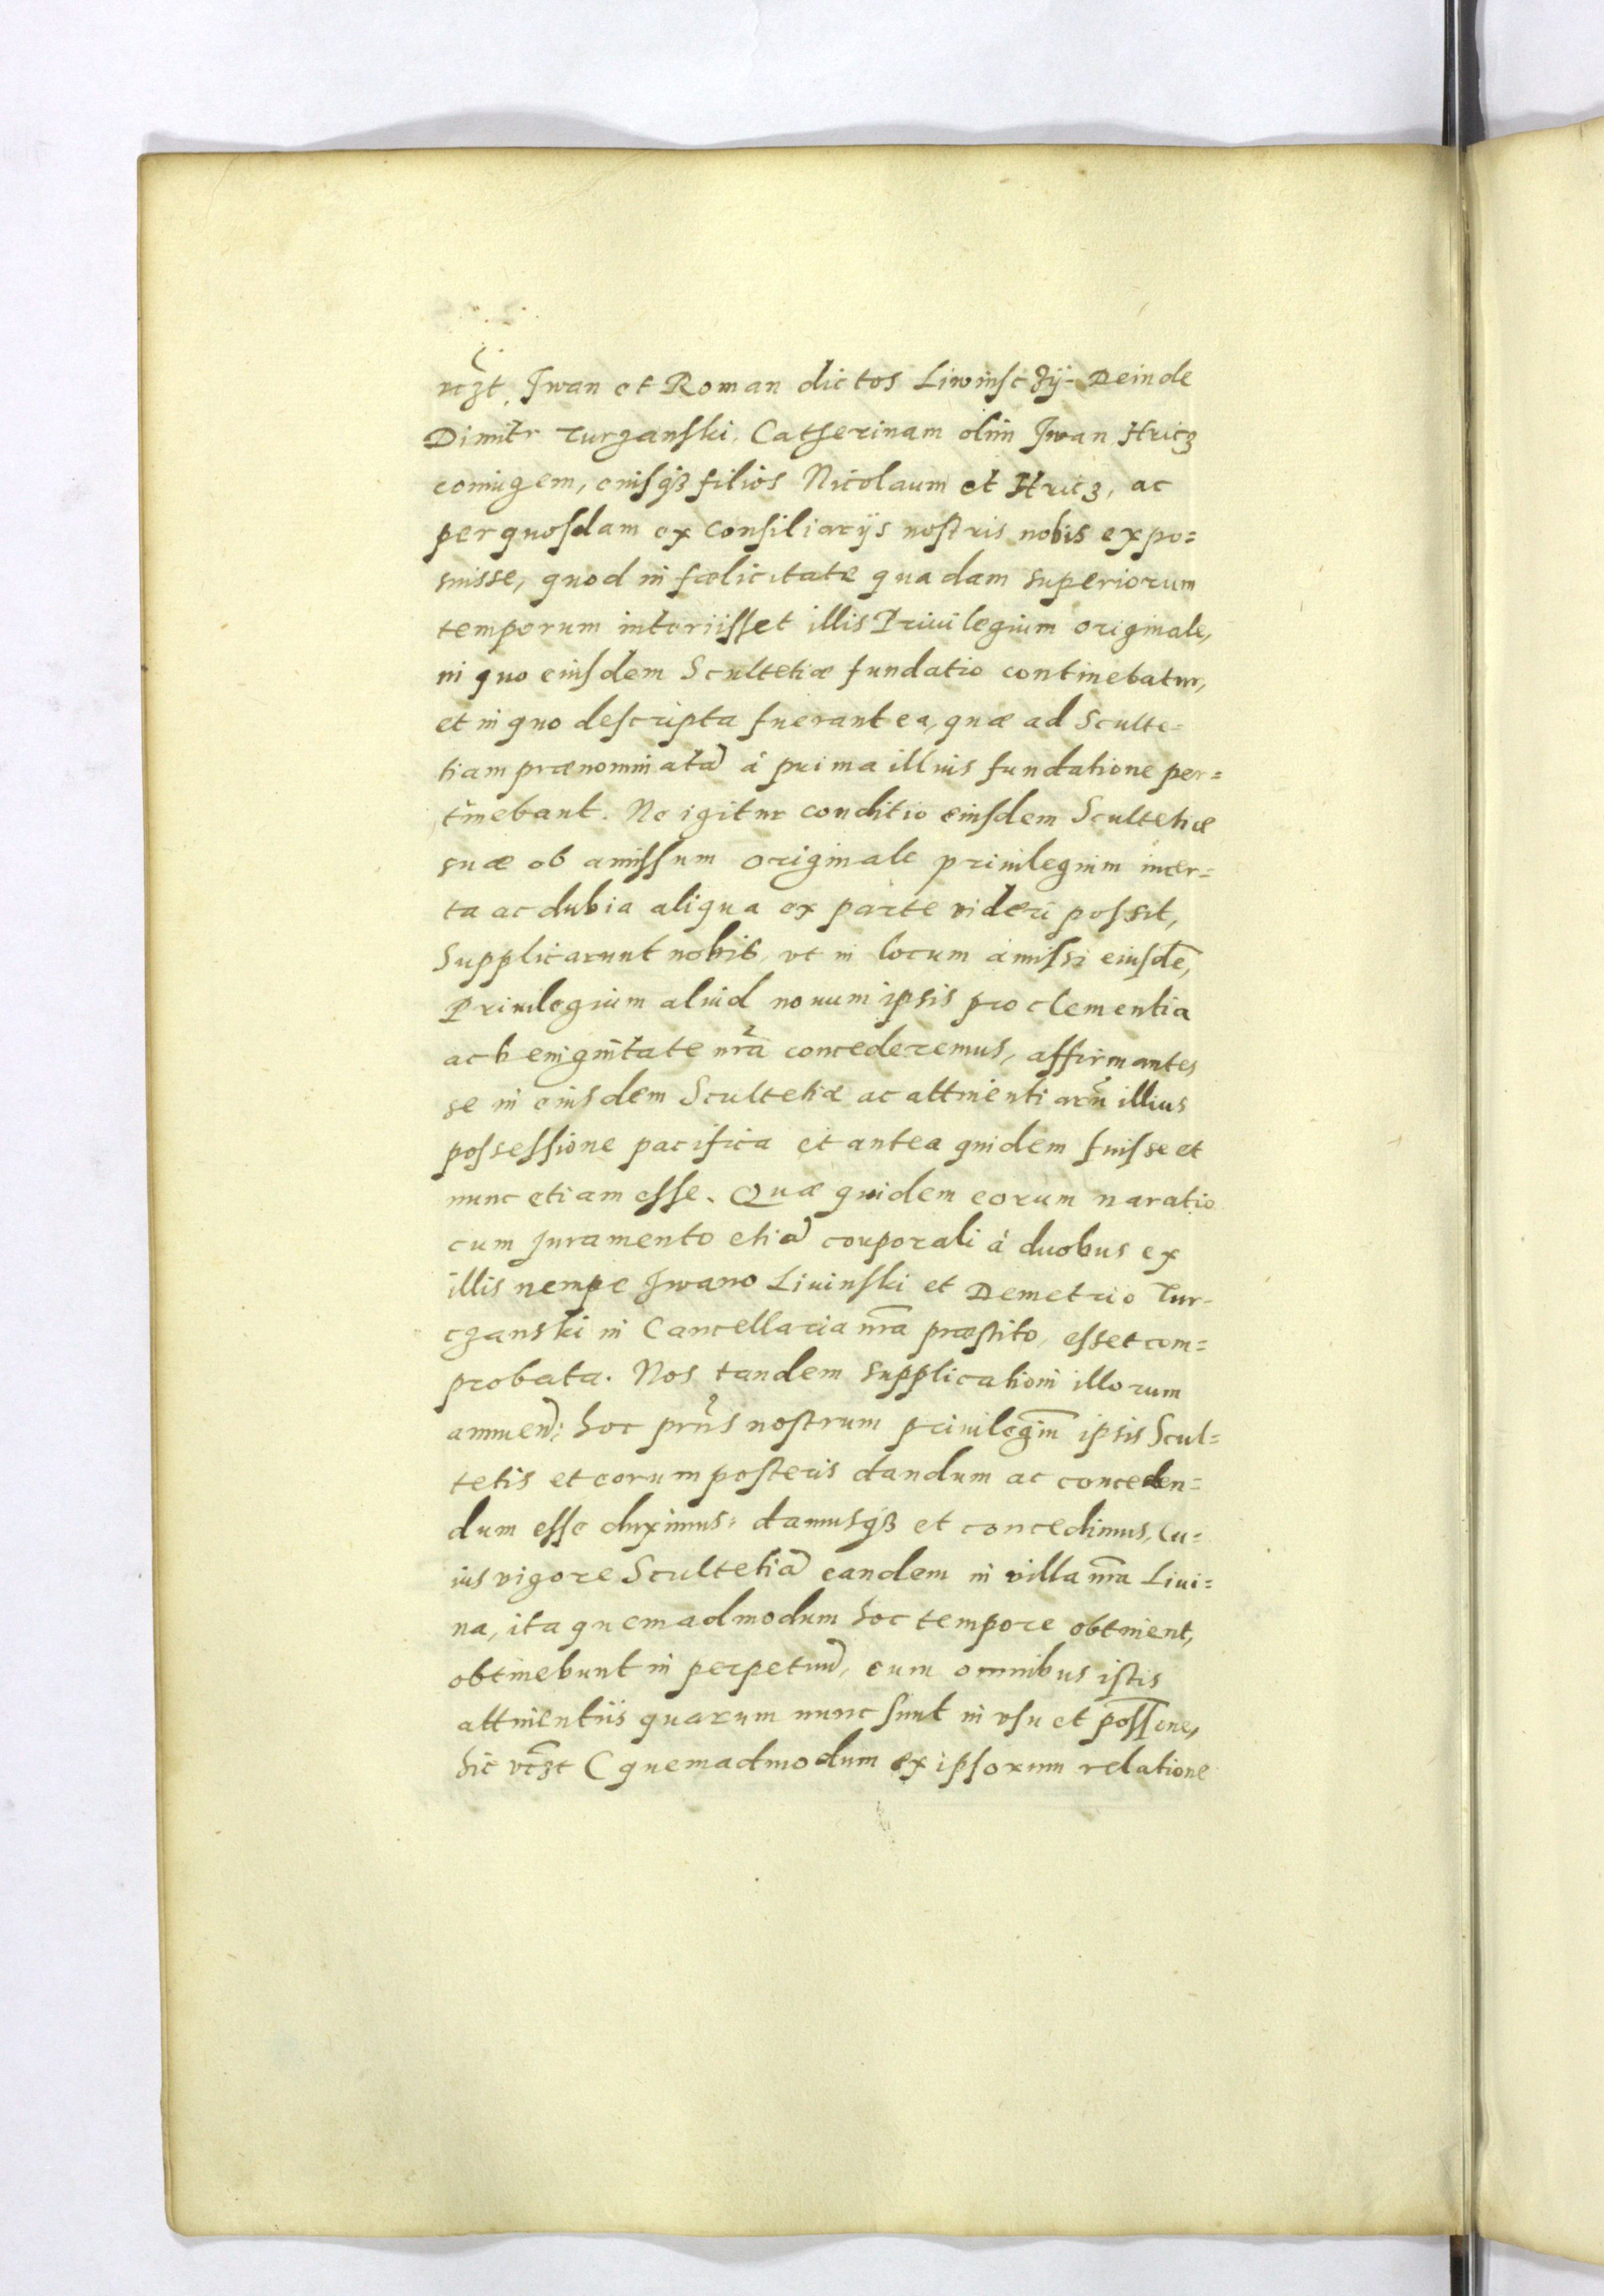 vczt Jwan et Roman dictos Liwinsczÿ- Deinde
Dimitr Turzanski, Catherinam olim Jwan Hricz
coniugem, eiusqȝ filios Nicolaum et Hricz, ac
per quosdam ex Consiliarijs nostris nobis expo=
suisse, quod infœlicitate quadam superiorum
temporum interiisset illis Priuilegium originale,
in quo eiusdem Scultetiæ fundatio continebatur,
et in quo descripta fuerant ea, quæ ad Sculte=
tiam prænominatã à prima illius fundatione per=
tinebant. Ne igitur conditio eiusdem Scultetiæ
suæ ob amissum originale priuilegium incer=
ta ac dubia aliqua ex parte videri possit,
Supplicarunt nobis, vt in locum amissi eiusdē,
Priuilegium aliud nouum ipsis pro clementia
ac benignitate nrã concederemus, affirmantes
se in eiusdem Scultetiæ ac attinentiarũ illius
possessione pacifica et antea quidem fuisse et
nunc etiam esse. Quæ quidem eorum naratio
cum juramento etiã corporali à duobus ex
illis nempe Jwano Liuinski et Demetrio Tur-
czanski in Cancellaria nrã præstito, esset com=
probata. Nos tandem supplicationi illorum
annuen̄: hoc prñs nostrum priuilegiũ ipsis Scul=
tetis et eorum posteris dandum ac conceden=
dum esse duximus: damusqȝ et concedimus, Cu=
ius vigore Scultetiã eandem in villa nrã Liui=
na, ita quemadmodum hoc tempore obtinent,
obtinebunt in perpetuũ, cum omnibus istis
attinentiis quarum nunc sunt in vsu et possione,
hic vczt (quemadmodum ex ipsorum relatione